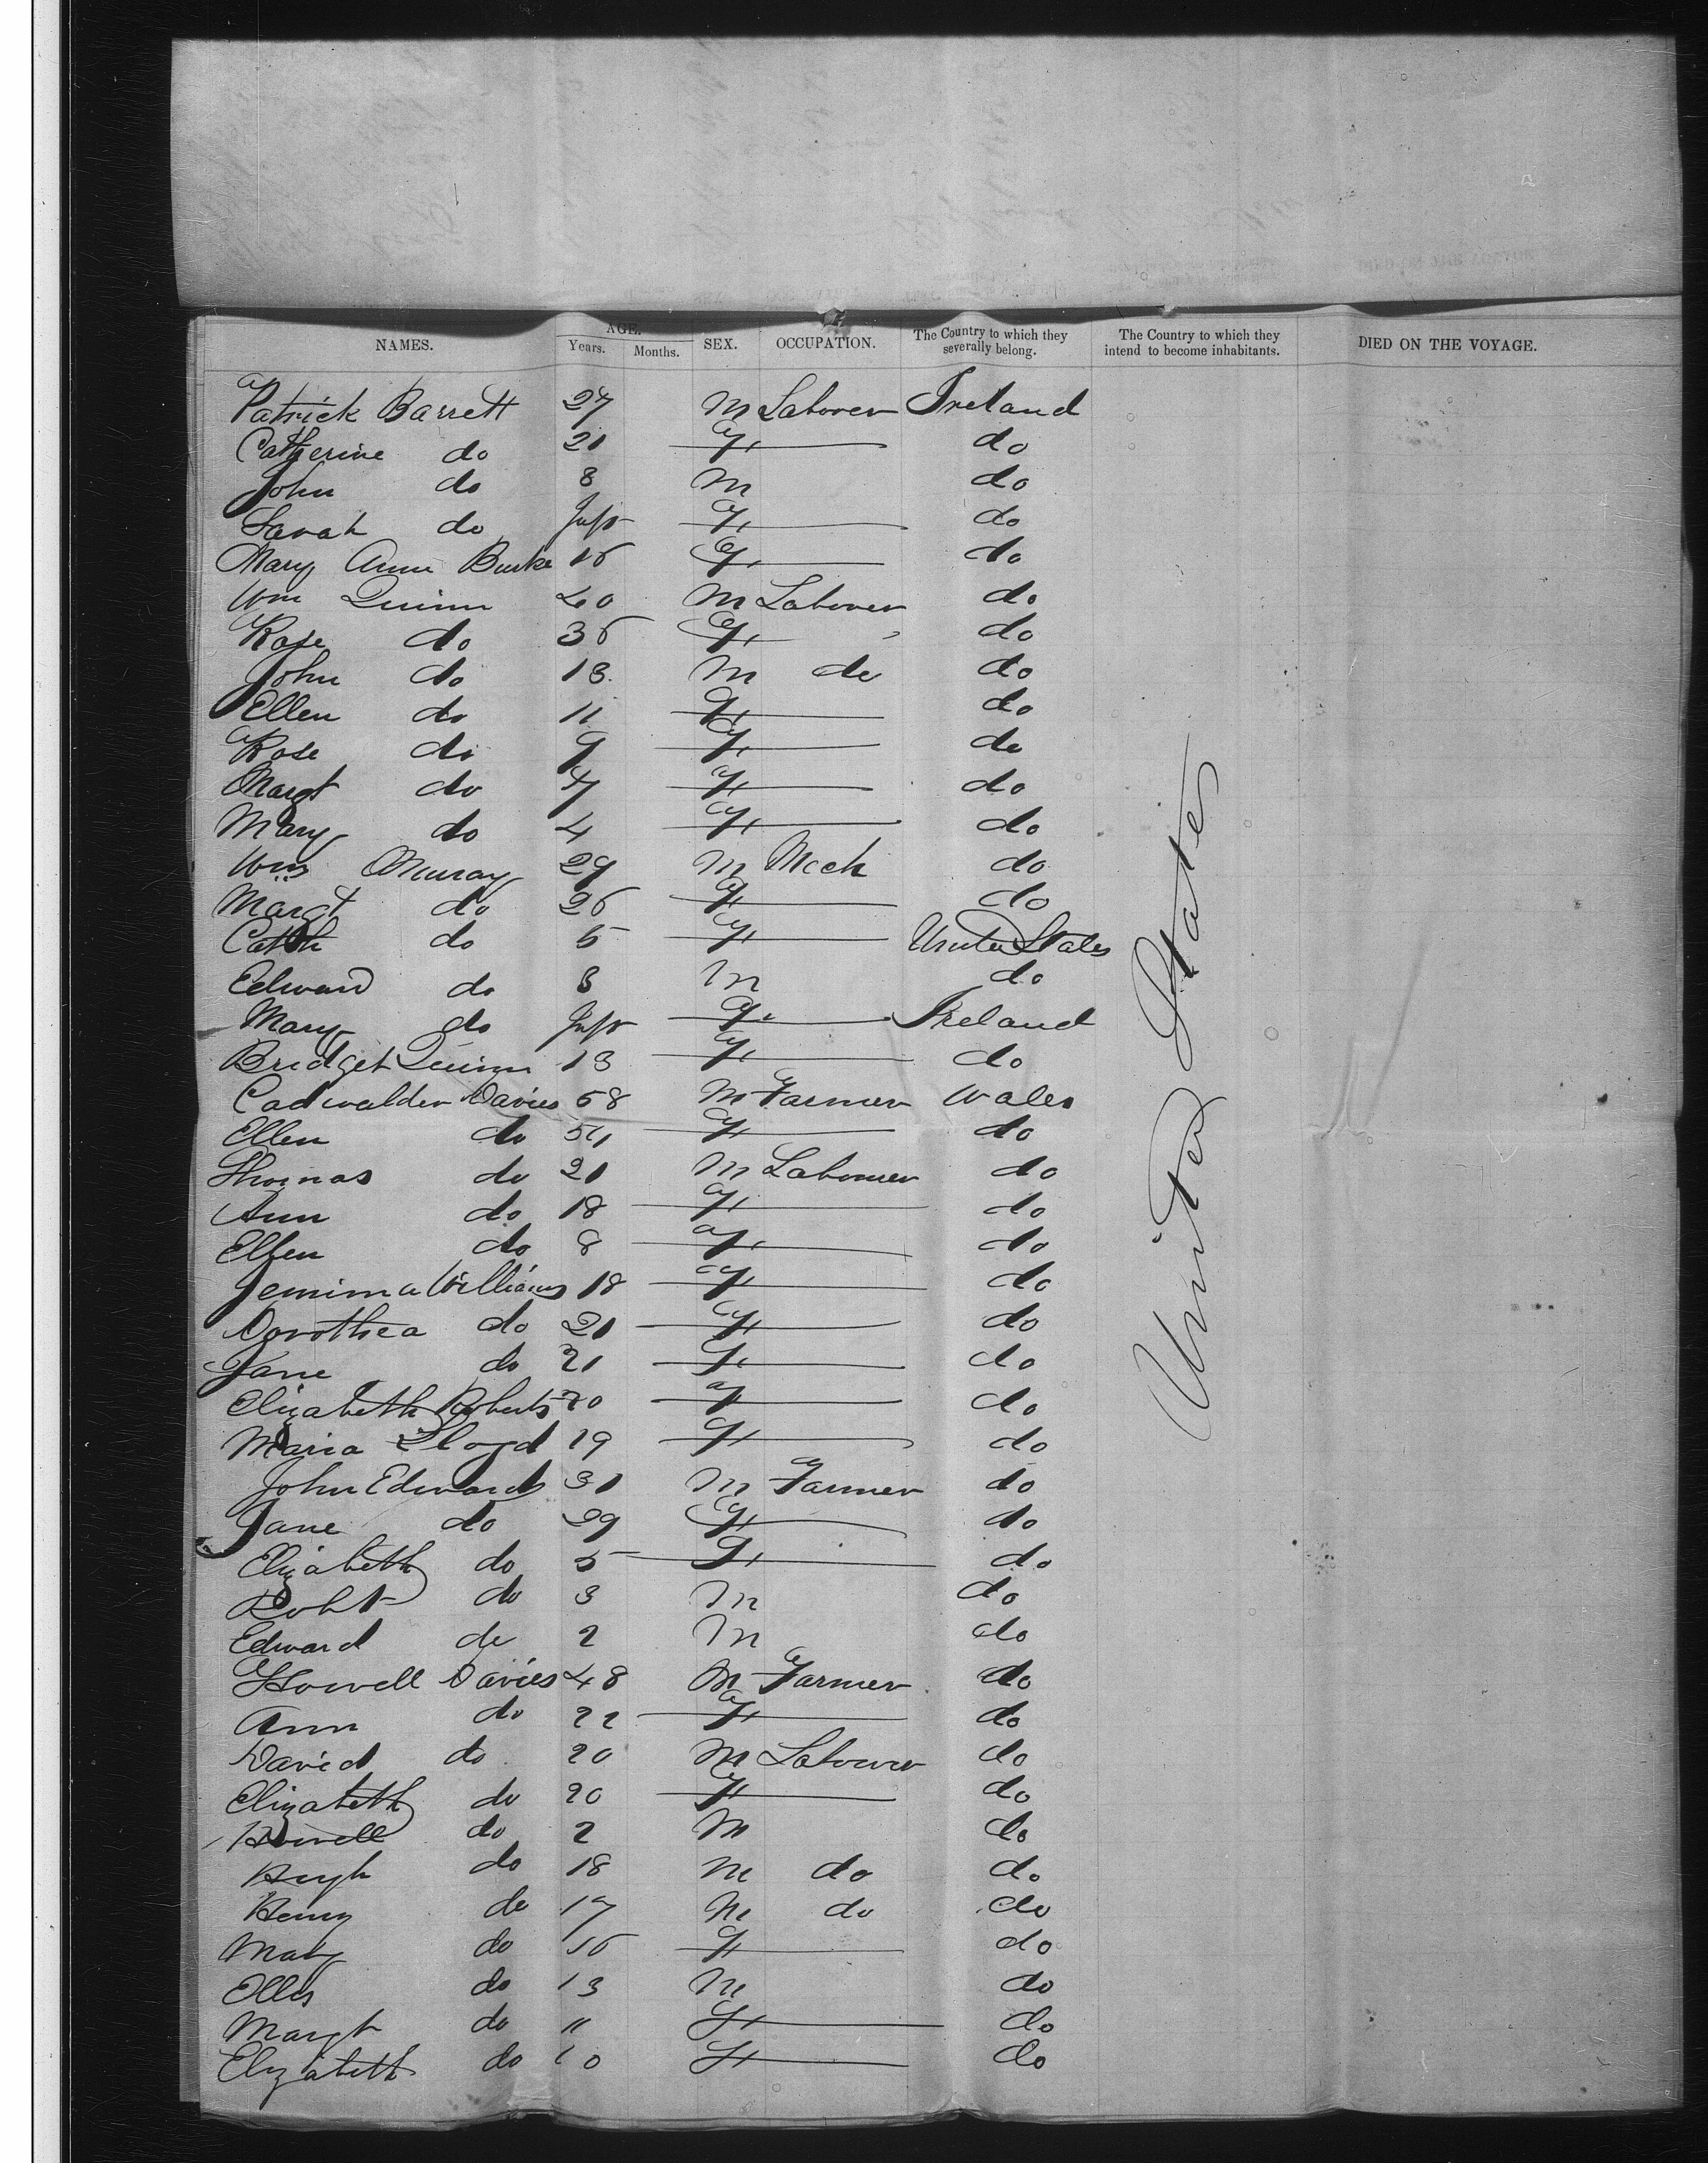 NAMES. AGE. Years. Months. SEX. OCCUPATION. The Country to which they severally belong. The Country to which they intend to become inhabitants. DIED ON THE VOYAGE.
Patrick Barrett 27 M Laborer Ireland
Catherine do 21 F do
John do 8 M do
Sarah do Inft F do
Mary Ann Burke 16 F do
Wm Quinn 40 M Laborer do
Rose do 36 F do
John do 13 M do do
Ellen do 11 F do
Rose do 9 F do
Margt do 7 F do
Mary do 4 F do
Wm Murray 29 M Mech do
Margt do 26 F do
Cath do 5 F United States
Edward do 3 M do
Mary do Inft F Ireland
Bridget Quinn 13 F do
Cadwalder Davies 58 M Farmer Wales
Ellen do 54 F do
Thomas do 21 M Labourer do
Ann do 18 F do
Ellen do 8 F do
Jemima Williams 18 F do
Dorothea do 21 F do
Jane do 21 F do
Elizabeth Roberts 20 F do
Maria Lloyd 19 F do
John Edwards 31 M Farmer do
Jane do 29 F do
Elizabeth do 5 F do
Robt do 3 M do
Edward do 2 M do
Howell Davies 48 M Farmer do
Ann do 22 F do
David do 20 M Labourer do
Elizabeth do 20 F do
Howell do 2 M do
Hugh do 18 M do do
Henry do 17 M do do
Mary do 16 F do
Ellis do 13 M do
Margt do 11 F do
Elizabeth do 10 F do
United States